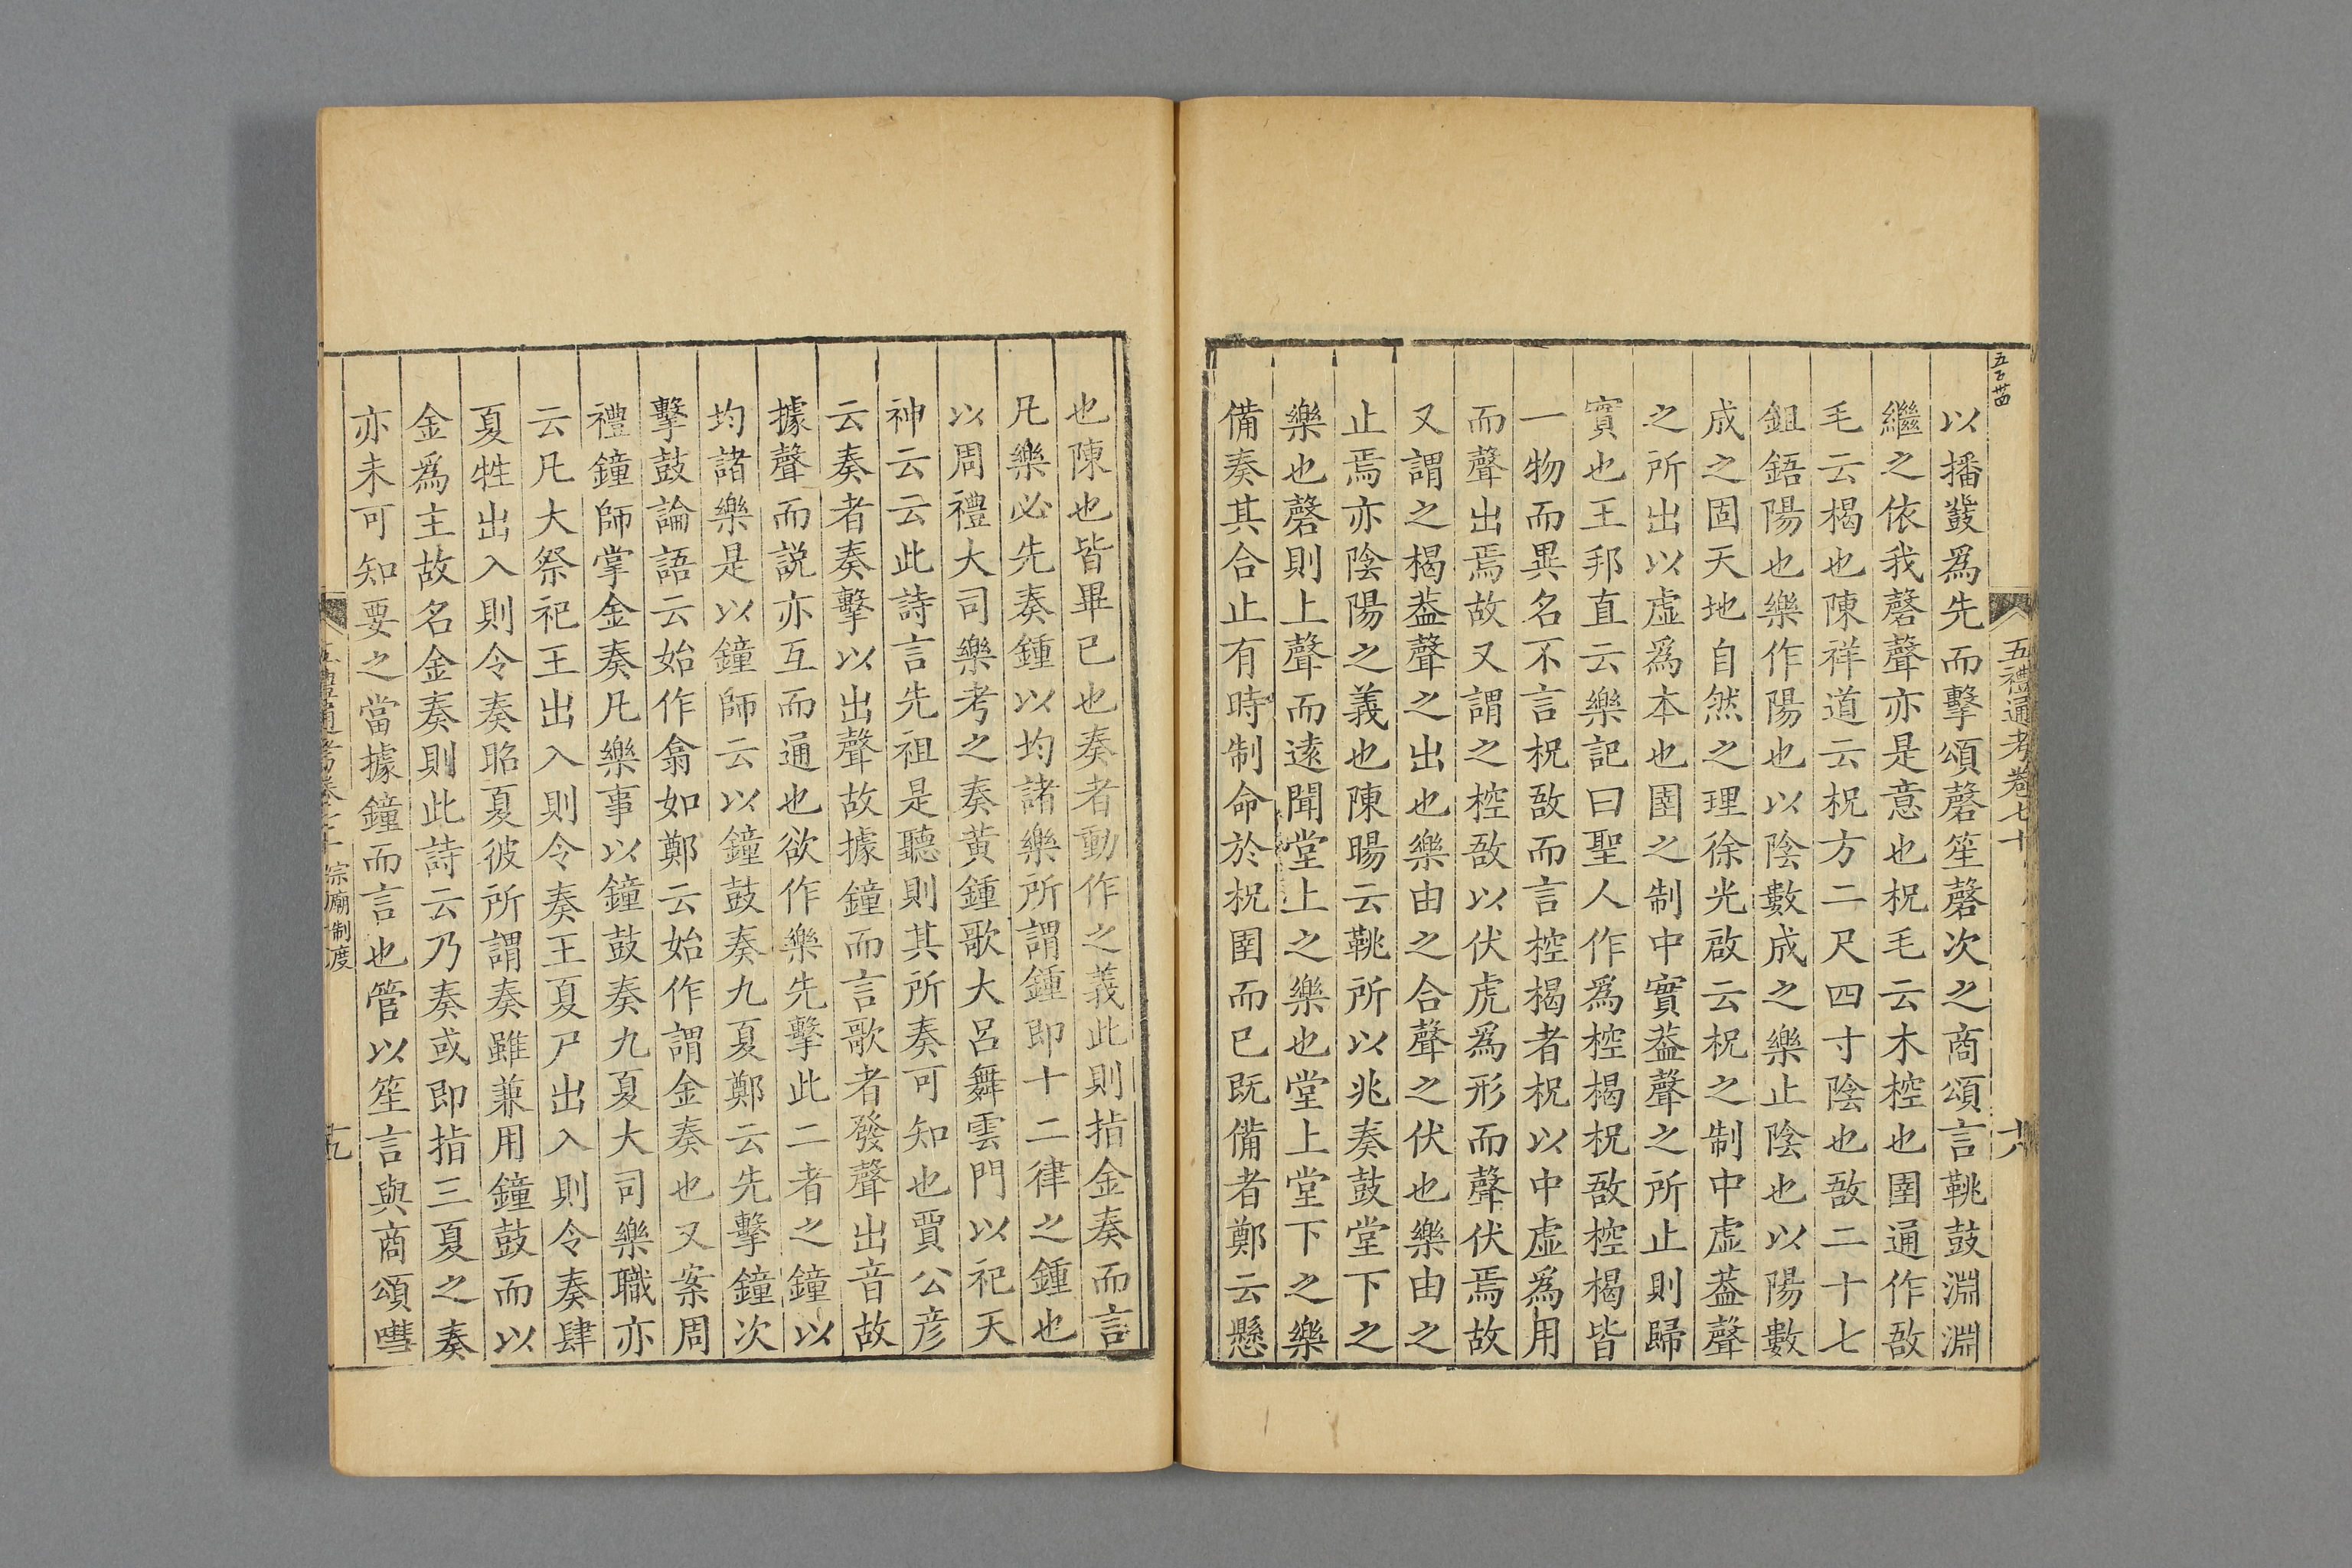 五百卌四
五禮通考卷七十
六
以播鼗爲先而擊頌磬笙磬次之商頌言鞉鼓淵淵
繼之依我磬聲亦是意也柷毛云木椌也圉通作敔
毛云楬也陳祥道云柷方二尺四寸陰也敔二十七
鉏鋙陽也樂作陽也以陰數成之樂止陰也以陽數
成之固天地自然之理徐光啟云柷之制中虛葢聲
之所出以虛爲本也圉之制中實葢聲之所止則歸
實也王邦直云樂記曰聖人作爲椌楬柷敔椌楬皆
一物而異名不言柷敔而言椌楬者柷以中虛爲用
而聲出焉故又謂之椌敔以伏虎爲形而聲伏焉故
又謂之楬葢聲之出也樂由之合聲之伏也樂由之
止焉亦陰陽之義也陳暘云鞉所以兆奏鼓堂下之
樂也磬則上聲而遠聞堂上之樂也堂上堂下之樂
備奏其合止有時制命於柷圉而已既備者鄭云懸
也陳也皆畢已也奏者動作之義此則指金奏而言
凡樂必先奏鍾以均諸樂所謂鍾即十二律之鍾也
以周禮大司樂考之奏黃鍾歌大呂舞雲門以祀天
神云云此詩言先祖是聽則其所奏可知也賈公彥
云奏者奏擊以出聲故據鐘而言歌者發聲出音故
據聲而說亦互而通也欲作樂先擊此二者之鐘以
均諸樂是以鐘師云以鐘鼓奏九夏鄭云先擊鐘次
擊鼓論語云始作翕如鄭云始作謂金奏也又案周
禮鐘師掌金奏凡樂事以鐘鼓奏九夏大司樂職亦
云凡大祭祀王出入則令奏王夏尸出入則令奏肆
夏牲出入則令奏昭夏彼所謂奏雖兼用鐘鼓而以
金爲主故名金奏則此詩云乃奏或即指三夏之奏
亦未可知要之當據鐘而言也管以笙言與商頌嘒
五禮通考卷七十 宗廟制度
九